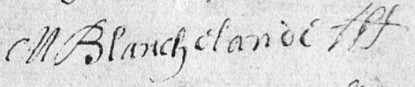 M Blanchelande